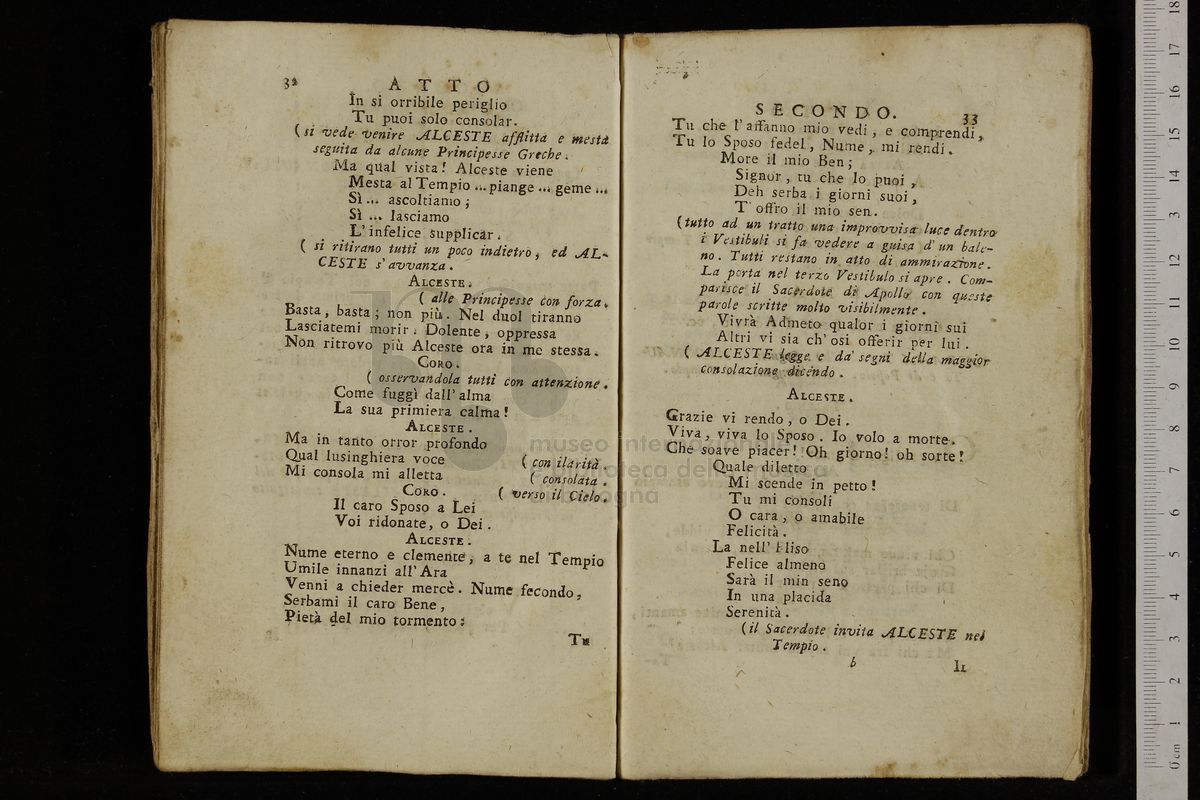 32 ATTO
In si orribile periglio
Tu puoi solo consolar.
( si vede venire ALCESTE afflitta e mesta
seguita da alcune Principesse Greche.
Ma qual vista! Alceste viene
Mesta al Tempio ... piange ... geme ...
Sì ... ascoltiamo ;
Sì ... lasciamo
L' infelice supplicar.
( si ritirano tutti un poco indietro, ed AL-
CESTE s' avvanza.
ALCESTE.
( alle Principesse con forza.
Basta, basta ; non più. Nel duol tiranno
Lasciatemi morir. Dolente, oppressa
Non ritrovo più Alceste ora in me stessa.
CORO.
( osservandola tutti con attenzione.
Come fuggì dall' alma
La sua primiera calma!
ALCESTE.
Ma in tanto orror profondo
Qual lusinghiera voce ( con ilarità.
Mi consola mi alletta ( consolata.
CORO. ( verso il Cielo.
Il caro Sposo a Lei
Voi ridonate, o Dei.
ALCESTE.
Nume eterno e clemente, a te nel Tempio
Umile innanzi all' Ara
Venni a chieder mercè. Nume fecondo,
Serbami il caro Bene,
Pietà del mio tormento:
Tu
SECONDO. 33
Tu che l' affanno mio vedi, e comprendi,
Tu lo Sposo fedel, Nume, mi rendi.
More il mio Ben;
Signor, tu che lo puoi,
Deh serba i giorni suoi,
T' offro il mio sen.
( tutto ad un tratto una improvvisa luce dentro
i Vestibuli si fa vedere a guisa d' un bale-
no. Tutti restano in atto di ammirazione.
La porta nel terzo Vestibulo si apre. Com-
parisce il Sacerdote di Apollo con queste
parole scritte molto visibilmente.
Vivrà Admeto qualor i giorni sui
Altri vi sia ch' osi offerir per lui.
( ALCESTE legge e da' segni della maggior
consolazione dicendo.
ALCESTE.
Grazie vi rendo, o Dei.
Viva, viva lo Sposo. Io volo a morte.
Che soave piacer! Oh giorno! oh sorte!
Quale diletto
Mi scende in petto!
Tu mi consoli
O cara, o amabile
Felicità.
La nell' Eliso
Felice almeno
Sarà il min seno
In una placida
Serenità.
( il Sacerdote invita ALCESTE nel
Tempio.
b IL
museo internazionale
biblioteca della musica
bologna
0 cm 1 2 3 4 5 6 7 8 9 10 11 12 13 14 15 16 17 18